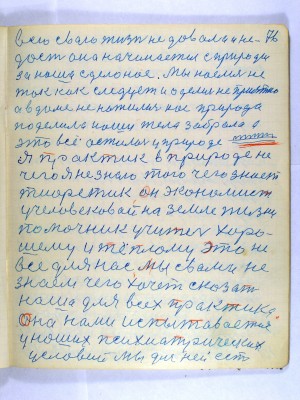 всю свою жизнь не давала и не- 76
дост она начинается с природы
за наша сделоное. Мы наелися не
так как следует и оделися не приятно
а в доме не нажилися нас природа
поделила наши тела забрала а
это всё осталися у природе
Я практик в природе не
чего я не знаю того чего знает
теоретик Он экономист
у человековай на земле жизни
помочник учител хоро-
шему и тёплому Это не
все для нас Мы с вами не
знаем чего хочет сказат
наша для всех практика
Она нами испытавается
у наших психиатрических
условий Мы для ней ест